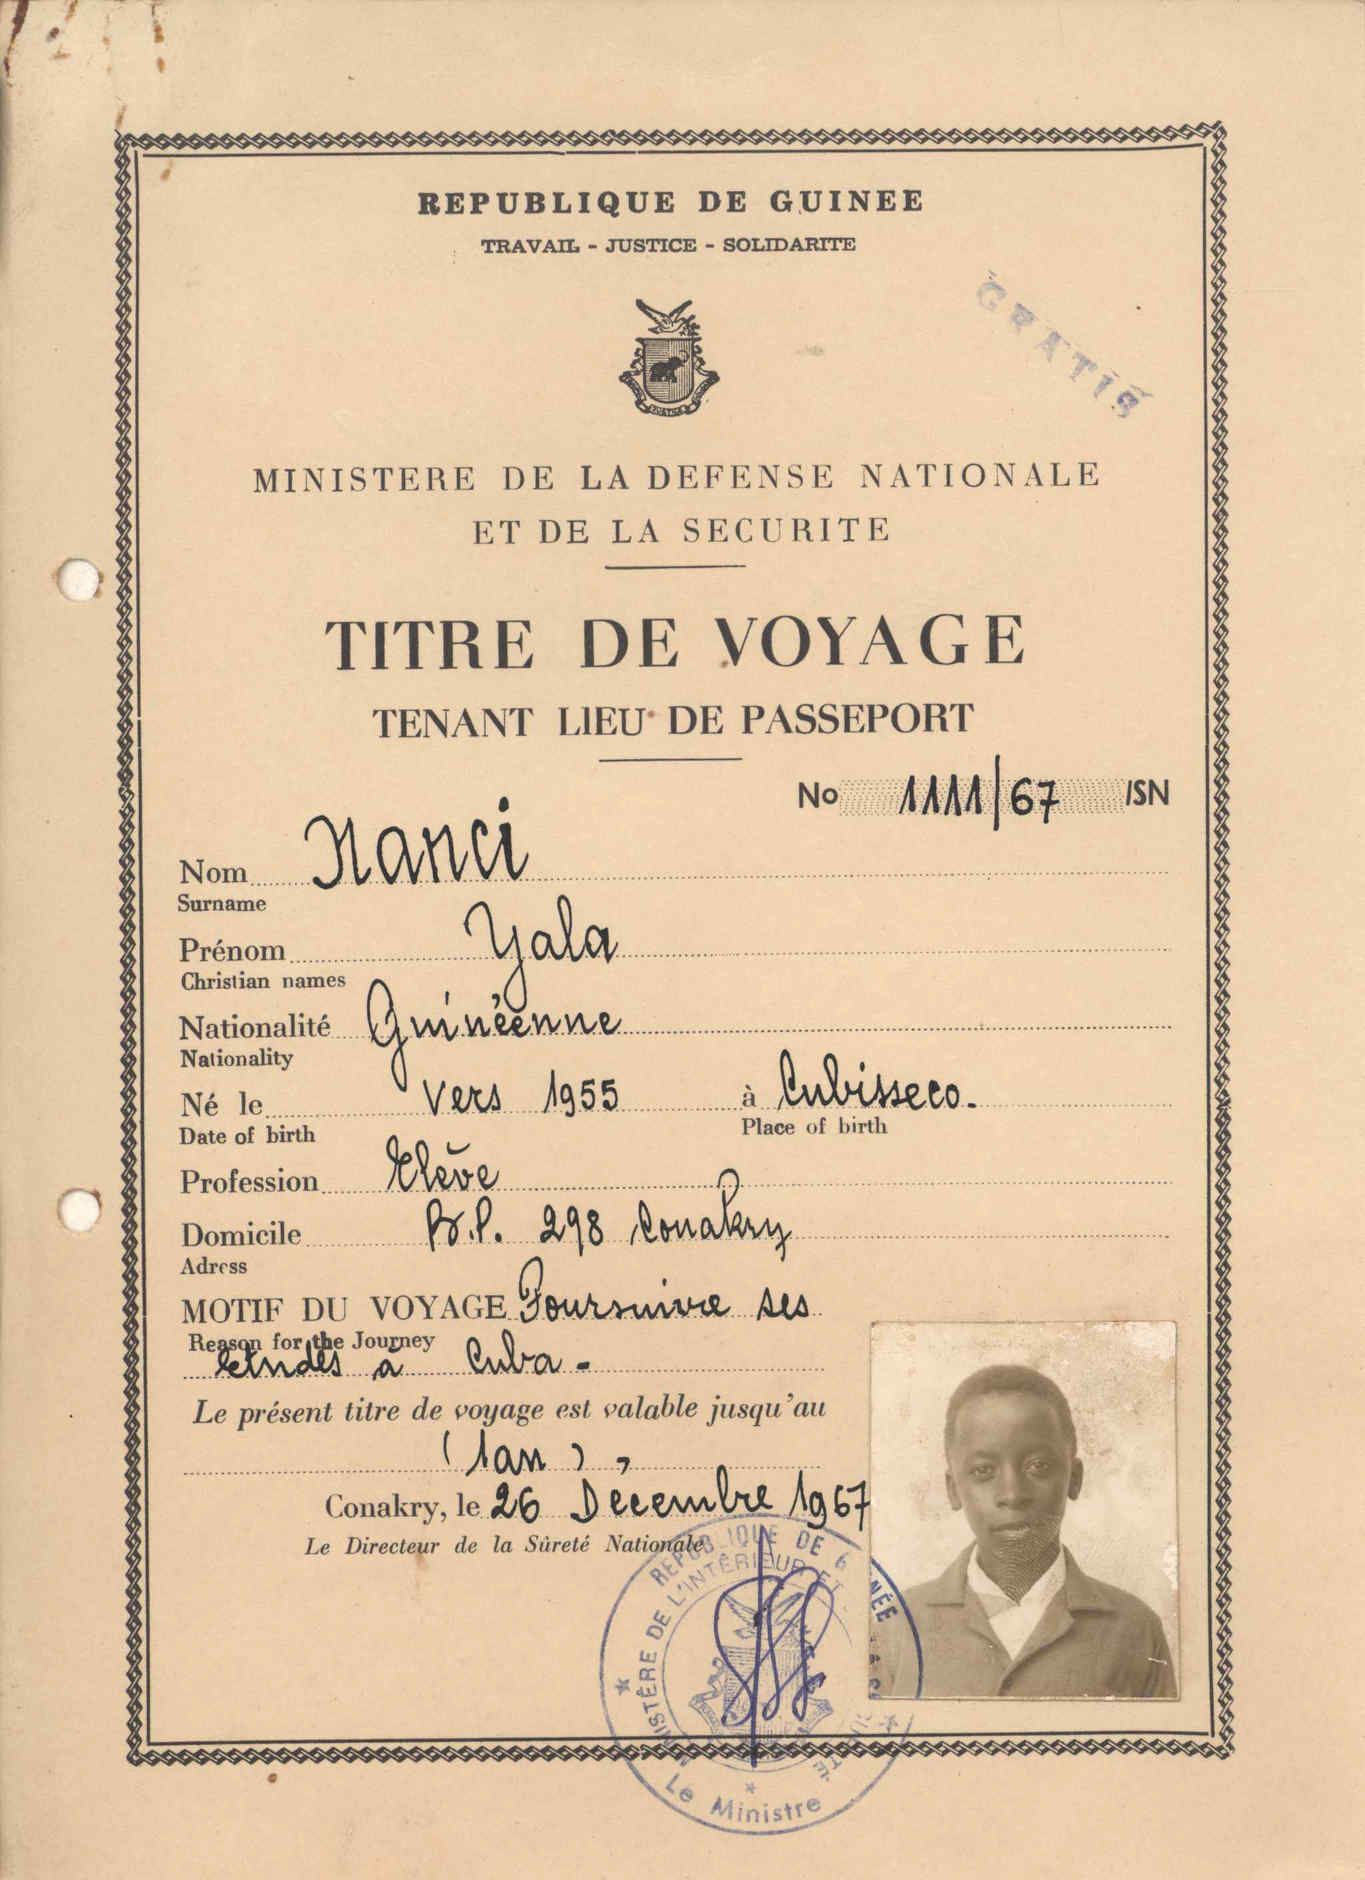 REPUBLIQUE DE GUINEE
TRAVAIL - JUSTICE - SOLIDARITE
GRATIS
MINISTERE DE LA DEFENSE NATIONALE
ET DE LA SECURITE
TITRE DE VOYAGE
TENANT LIEU DE PASSEPORT
No 1111/67 /SN
Nom Nanci
Surname
Prénom Yala
Christian names
Nationalité Guinéenne
Nationality
Né le Vers 1955 à Cubisseco.
Date of birth Place of birth
Profession Elève
Domicile B.P. 298 Conakry
Adress
MOTIF DU VOYAGE Poursuivre ses
Reason for the Journey
etudes à Cuba -
Le présent titre de voyage est valable jusqu'au
(1an) ,
Conakry, le 26 Decembre 1967
Le Directeur de la Sûreté Nationale
REPUBLIQUE DE GUINÉE
MINISTÈRE DE L'INTÉRIEUR ET
Le Ministre